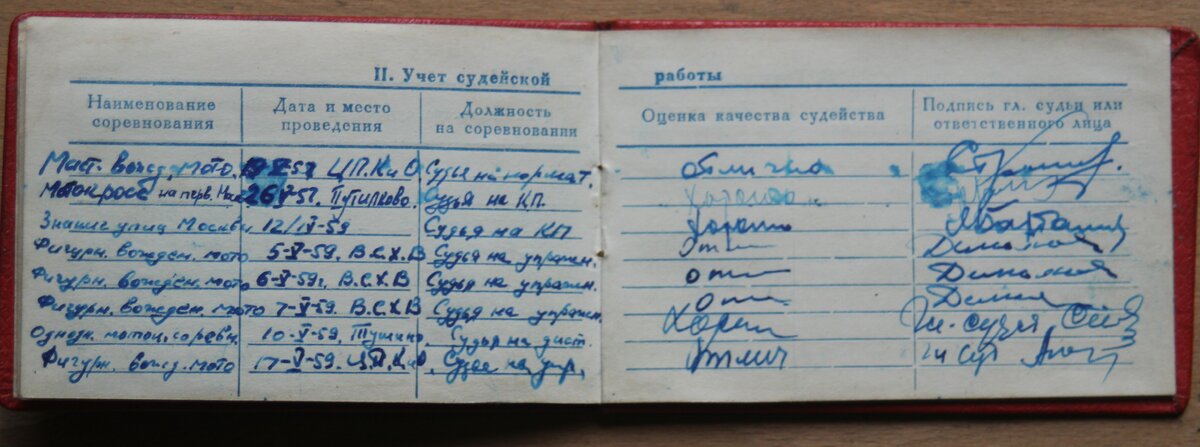 II. Учет судейской работы
Наименование соревнования
Дата и место проведения
Должность на соревновании
Оценка качества судейства
Подпись гл. судьи или ответственного лица
вожд. мото. Ц.П.КиО Судья на отлично
Мотокросс на перв. 26 Путилково. Судья на КП. хорошо
Знание улиц Москвы 12/IV-59 Судья на КП хорошо
Фигурн. вожден. мото 5-V-59 В.С.Х.В Судья на упражн. Отл
Фигурн. вожден. мото 6-V-59г. В.С.Х.В Судья на упражн. отл
Фигурн. вожден. мото 7-V-59. В.С.Х.В Судья на упражн. Отл
Однодн. мотоц. соревн. 10-V-59. Тушино. Судья на дист. Хорош Гл. судья
Фигурн. вожд. мото 17-V-59. Ц.П.КиО Судья на упр. Отлич